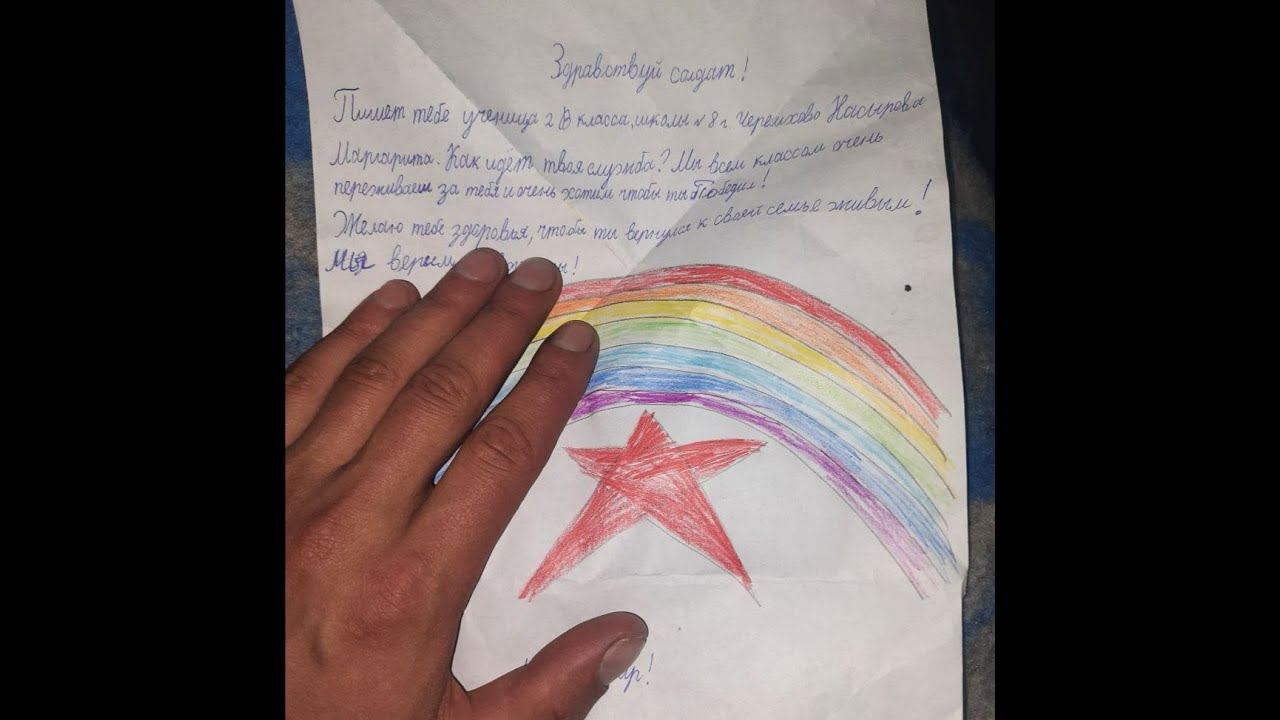 Здравствуй солдат!
Пишет тебе ученица 2 В класса, школы №8 г. Черемхово Насырова
Маргарита. Как идёт твоя служба? Мы всем классом очень
переживаем за тебя и очень хотим чтобы ты Победил!
Желаю тебе здоровья, чтобы ты вернулся к своей семье живым!
Мы верим